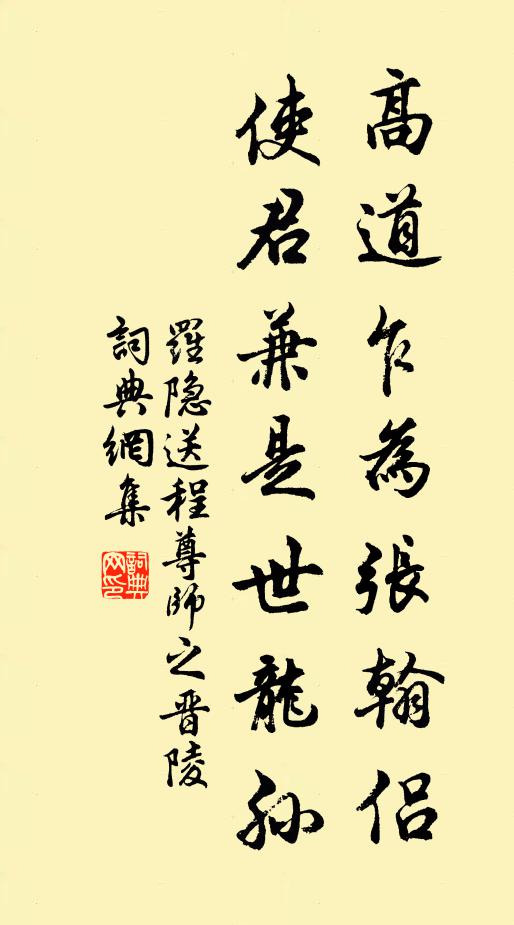 高道乍為張翰侶
使君兼是世龍孫
羅隐送程尊師之晋陵
詞典網集
詞典网印